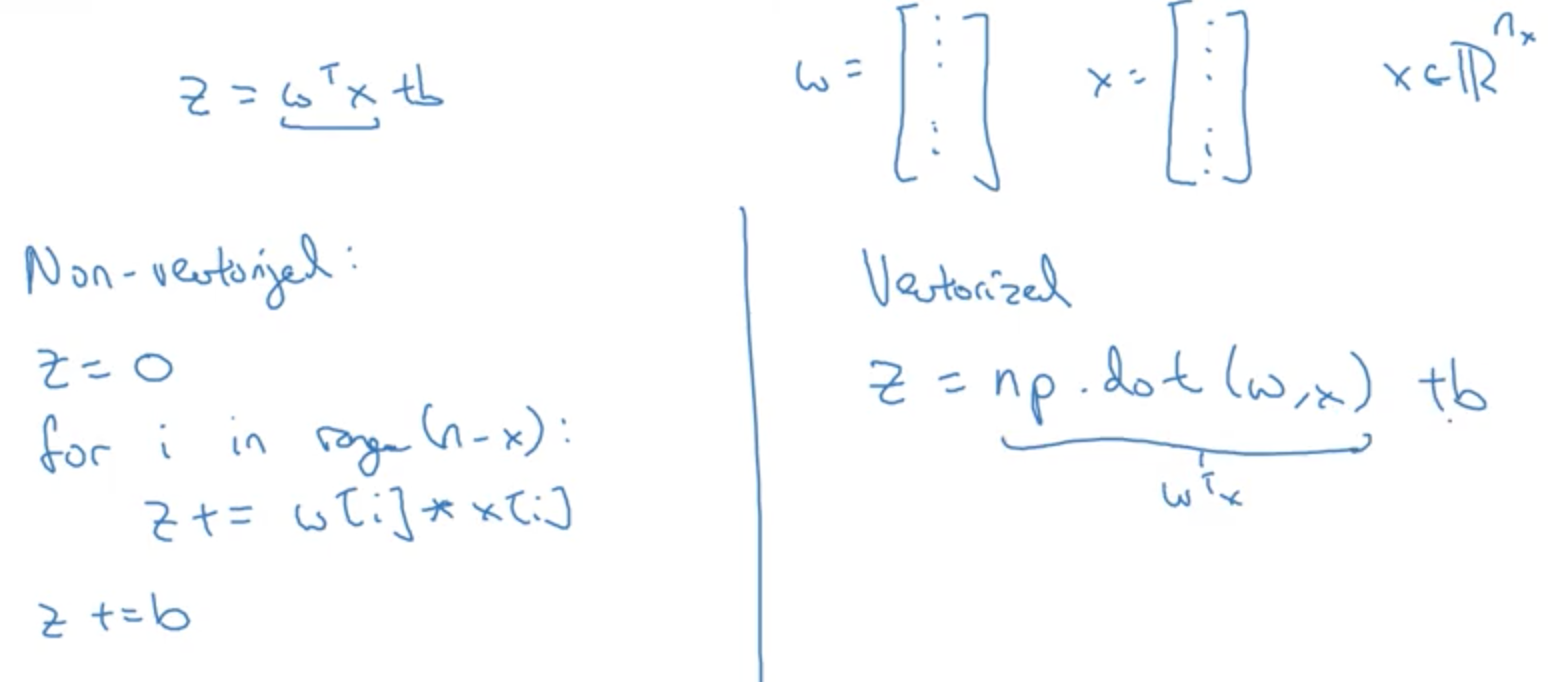 z = wᵀx + b
w = [⋮ ⋮]
x = [⋮ ⋮]
x ∈ ℝⁿˣ
Non-vectorized:
z = 0
for i in range(n-x):
z += w[i] * x[i]
z += b
Vectorized
z = np.dot(w,x) + b
wᵀx